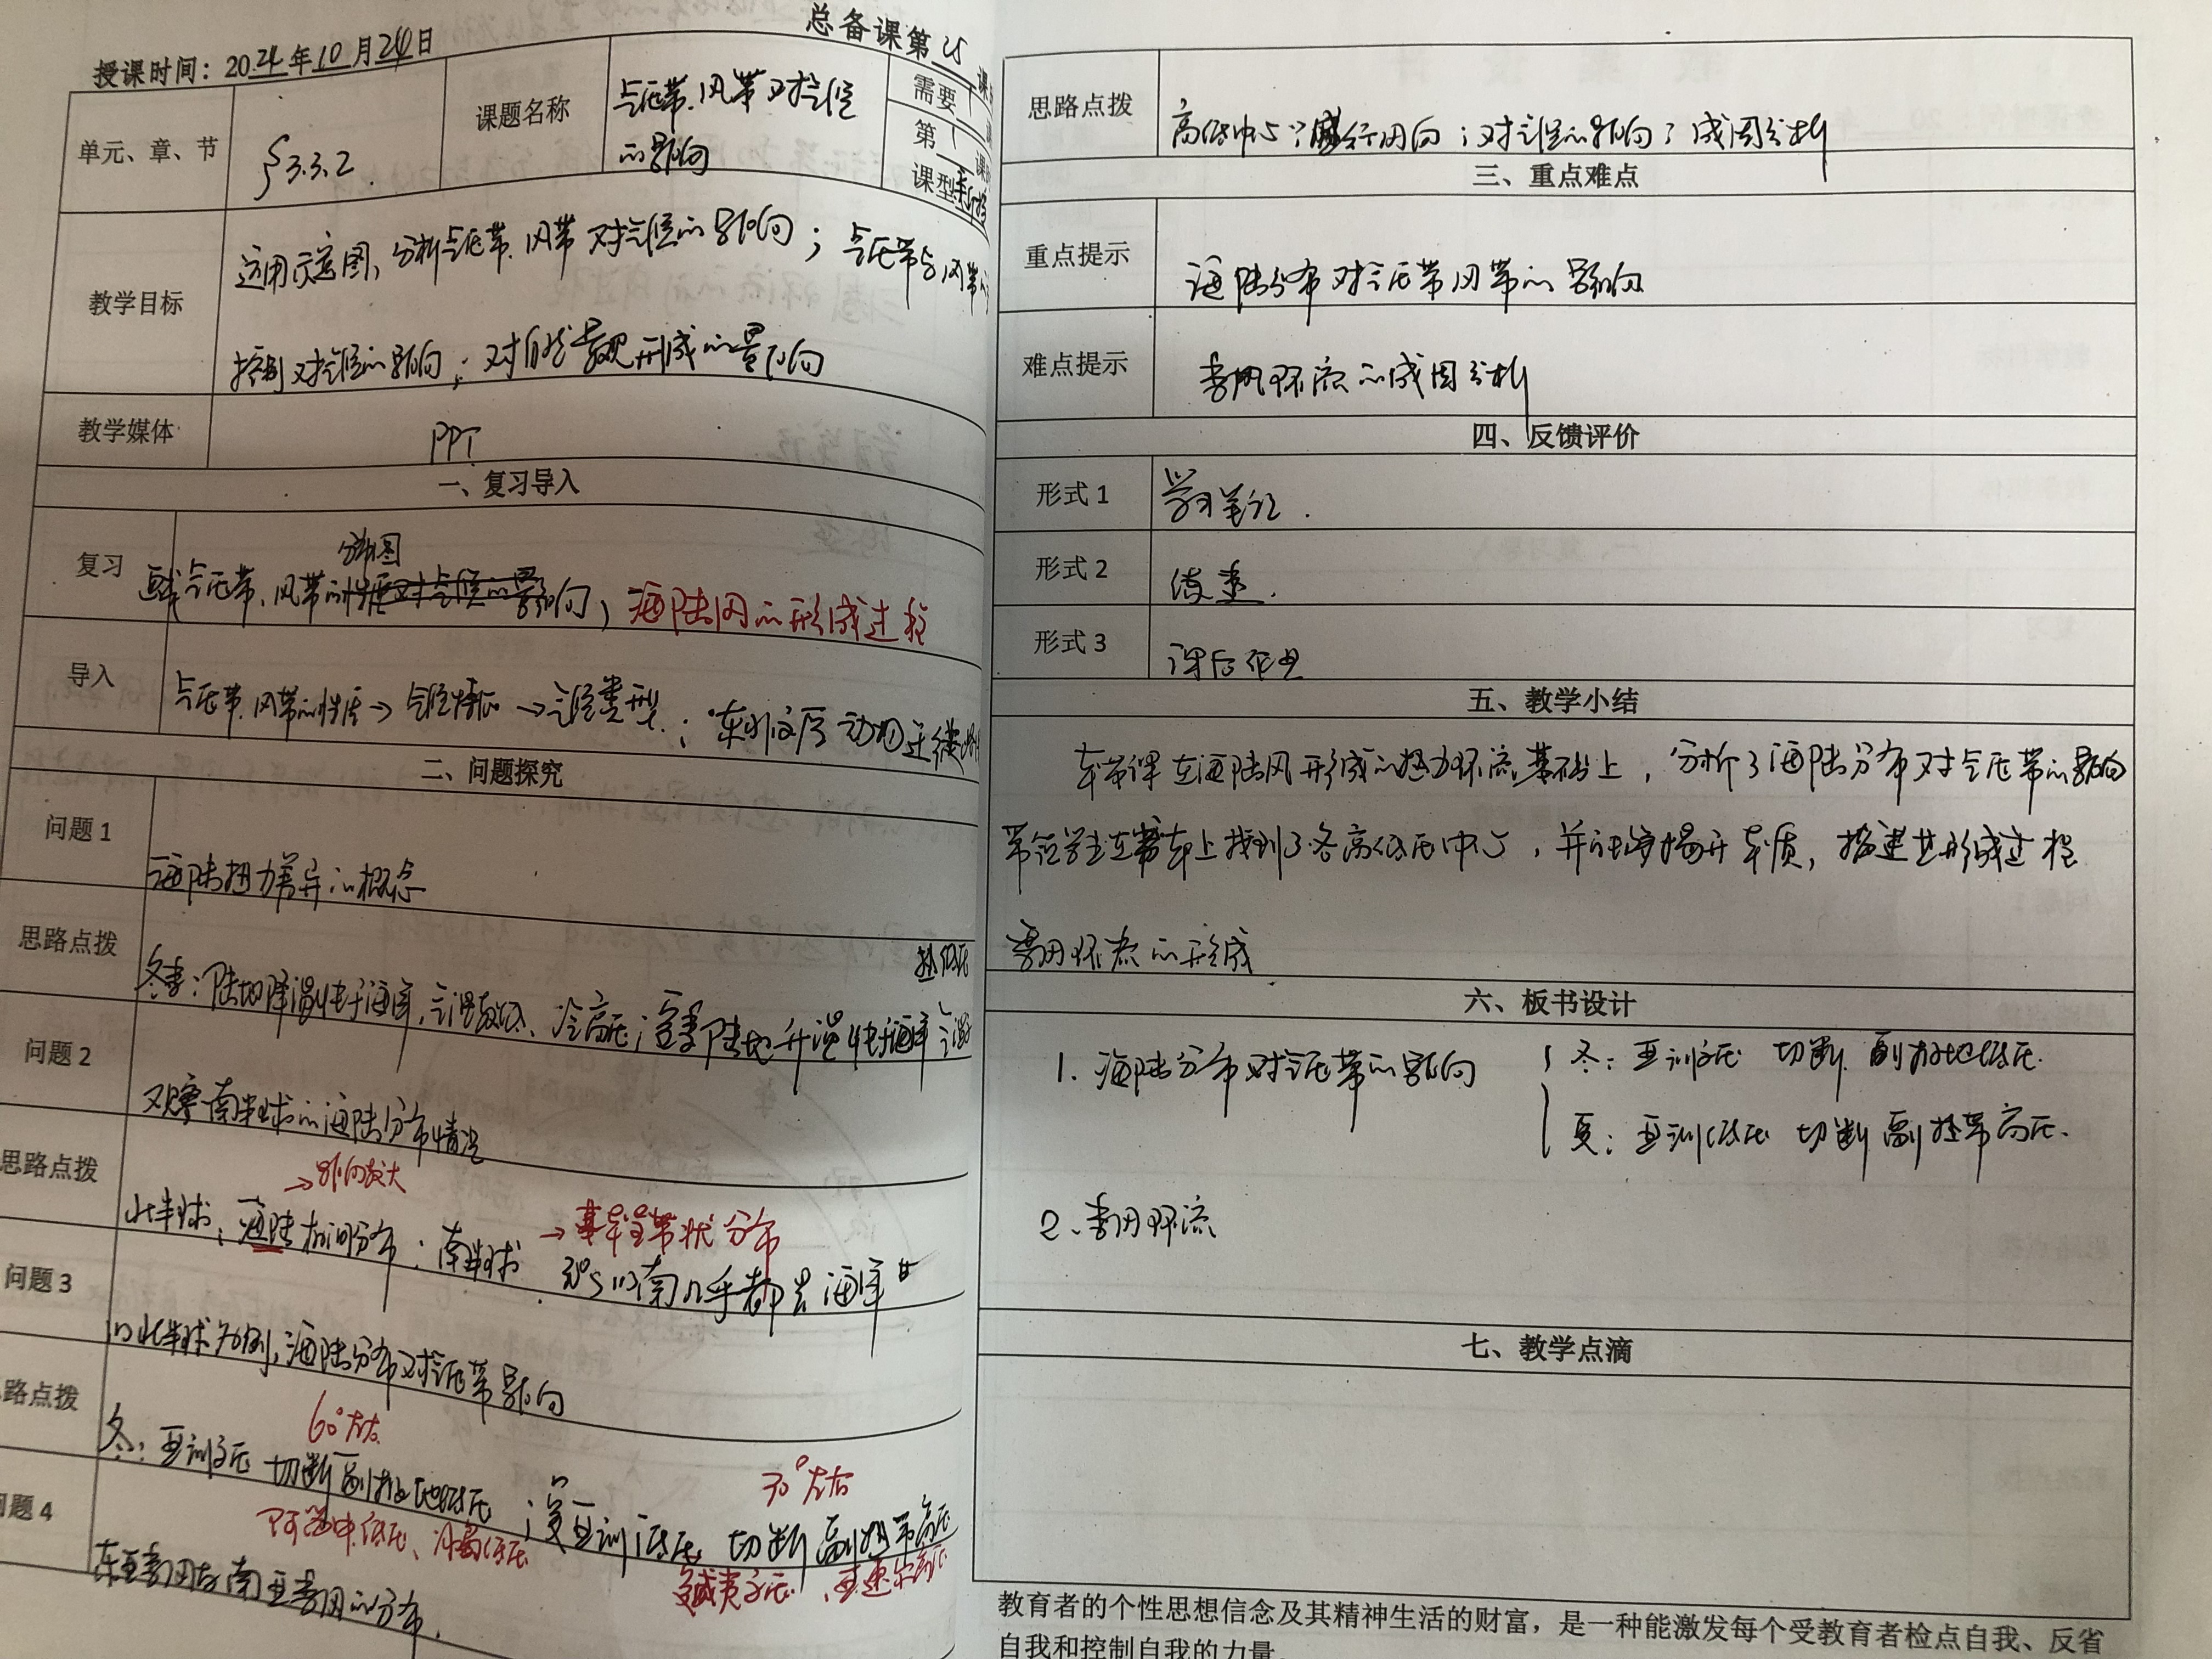 授课时间：2024年10月24日
总备课第25课
单元、章、节
§3.3.2
课题名称
气压带、风带对气候
的影响
需要1
第1课
课型新授
教学目标
运用示意图，分析气压带、风带对气候的影响；气压带与风带
控制对气候的影响；对自然景观形成的影响
教学媒体
PPT
一、复习导入
复习
分布图
画气压带、风带的性质对气候的影响，海陆风的形成过程
导入
气压带、风带的性质→气候特征→气候类型；东非草原动物迁徙
二、问题探究
问题1
海陆热力差异的概念
思路点拨
热低压
冬季：陆地降温快于海洋，气温较低、冷高压；夏季陆地升温快于海洋 气温
问题2
观察南半球的海陆分布情况
思路点拨
→影响较大
北半球：海陆相间分布；南半球 30°S以南几乎都是海洋
→基本呈带状分布
问题3
以北半球为例，海陆分布对气压带影响
路点拨
60°左右
冬：亚洲高压 切断副极地低压；夏亚洲低压 切断副热带高压
30°左右
阿留申低压、冰岛低压
夏威夷高压、亚速尔高压
问题4
东亚季风与南亚季风的分布.
思路点拨
高低中心；盛行风向；对气候的影响；成因分析
三、重点难点
重点提示
海陆分布对气压带风带的影响
难点提示
季风环流的成因分析
四、反馈评价
形式1
学习笔记.
形式2
形式3
课后作业
五、教学小结
本节课在海陆风形成的热力环流基础上，分析了海陆分布对气压带的影响
带领学生在书本上找到了各高低压中心，并 本质，描述其形成过程
季风环流的形成
六、板书设计
1、海陆分布对气压带的影响
冬：亚洲高压 切断 副极地低压.
夏：亚洲低压 切断 副热带高压.
2、季风环流
七、教学点滴
教育者的个性思想信念及其精神生活的财富，是一种能激发每个受教育者检点自我、反省
自我和控制自我的力量。